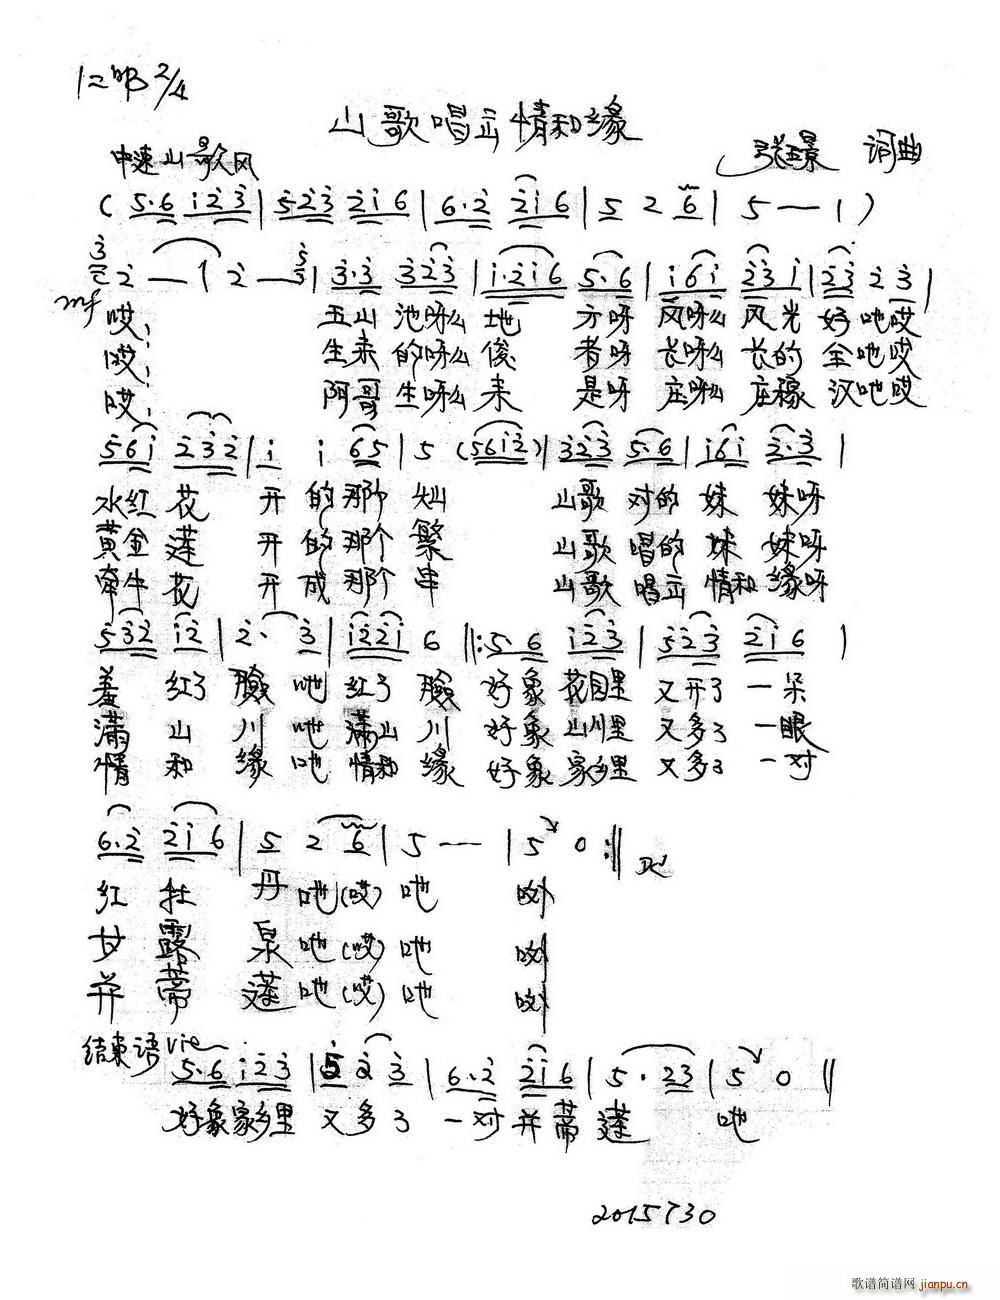 1=♭B 2/4
山歌唱云情和缘
中速山歌风 词曲
(5·6 i23|523 2i6|6·2 2i6|5 2 6|5——1)
2—1 2—|3·3 323|i·2i6 5·6|i6i 23i|23 2 3|
mf 哎, 五山池呀么地方呀风呀么风光好吔哎
哎, 生来的呀么俊者呀长呀么长的全吔哎
哎, 阿哥生呀么来是呀庄呀么庄稼汉吔哎
56i 232|i i 65|5 (56i2)|323 5·6|i6i 2·3|
水红花开的那个灿 山歌对的妹妹呀
黄金莲开的那个繁 山歌唱的妹妹呀
牵牛花开成那个串 山歌唱云情和缘呀
532 i2|2· 3|i22i 6‖:5·6 i23|523 2i6|
羞红了脸吔红了脸好象花园里又开了一朵
满山川吔满山川好象山川里又多了一眼
情和缘吔情和缘好象家乡里又多了一对
6·2 2i6|5 2 6|5——|5 0:‖ D.C
红牡丹吔(哎)吔呦
甘露泉吔(哎)吔呦
并蒂莲吔(哎)吔呦
结束语
5·6 i23|5 2 3|6·2 2i6|5·23|5 0‖
好象家乡里又多了一对并蒂莲吔
2015730
歌谱简谱网
jianpu.cn